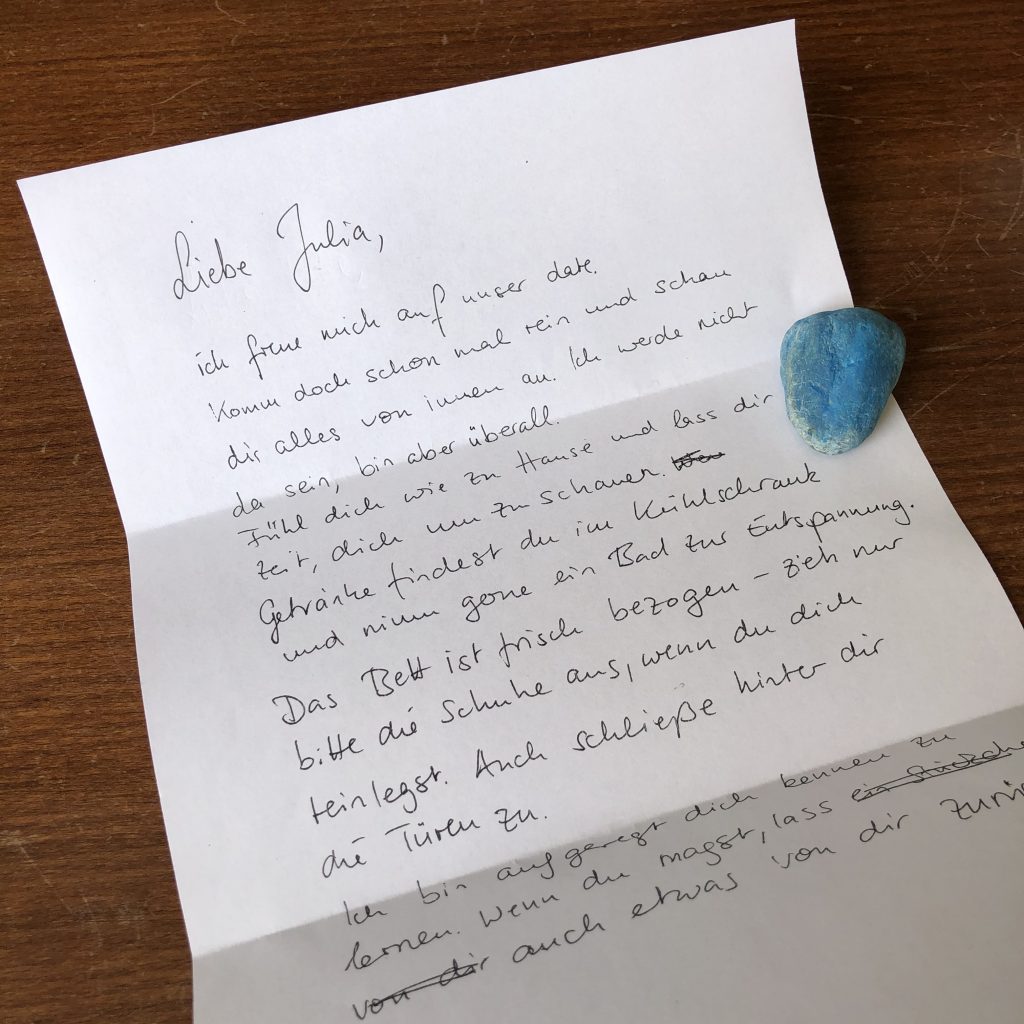 Liebe Julia,
ich freue mich auf unser date.
Komm doch schon mal rein und schau
dir alles von innen an. Ich werde nicht
da sein, bin aber überall.
Fühl dich wie zu Hause und lass dir
Zeit, dich um zu schauen.
Getränke findest du im Kühlschrank
und nimm gerne ein Bad zur Entspannung.
Das Bett ist frisch bezogen – zieh nur
bitte die Schuhe aus, wenn du dich
reinlegst. Auch schließe hinter dir
die Türen zu.
Ich bin aufgeregt dich kennen zu
lernen. Wenn du magst, lass ein
von dir auch etwas von dir